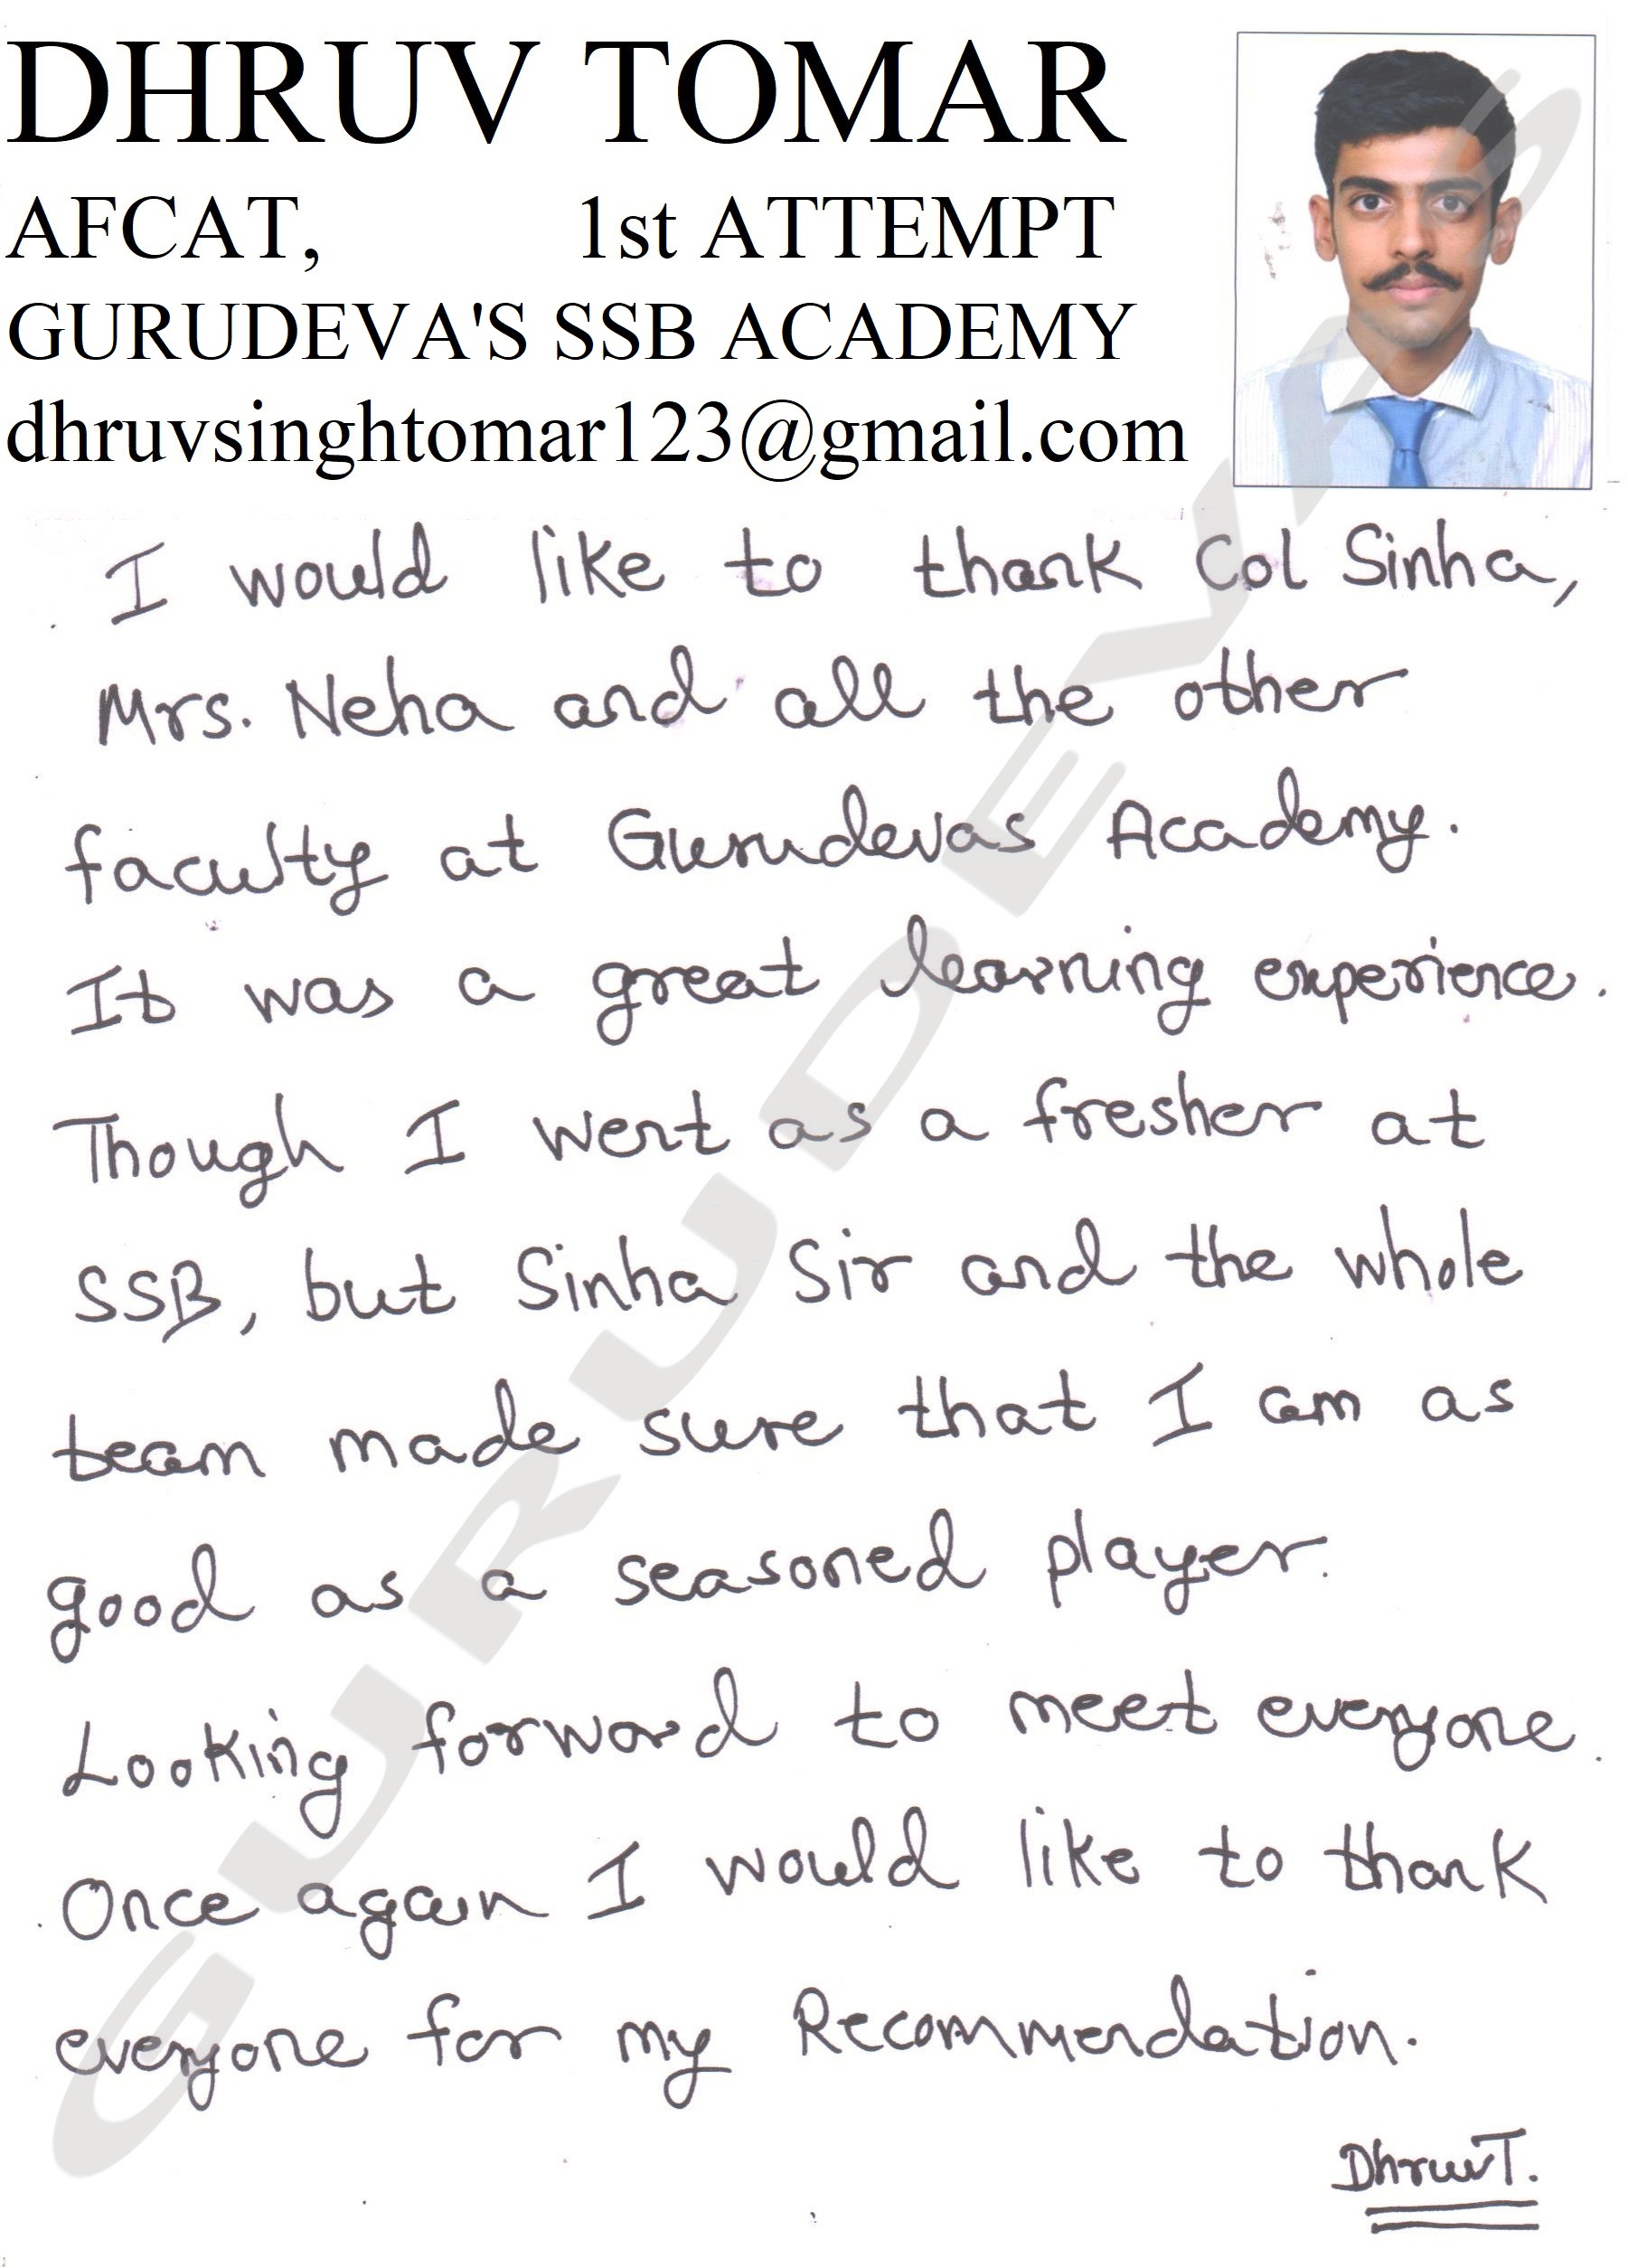 DHRUV TOMAR
AFCAT, 1st ATTEMPT
GURUDEVA'S SSB ACADEMY
dhruvsinghtomar123@gmail.com
I would like to thank Col Sinha,
Mrs. Neha and all the other
faculty at Gurudevas Academy.
It was a great learning experience.
Though I went as a fresher at
SSB, but Sinha Sir and the whole
team made sure that I am as
good as a seasoned player.
Looking forward to meet everyone.
Once again I would like to thank
everyone for my Recommendation.
DhruvT.
GURUDEVAS